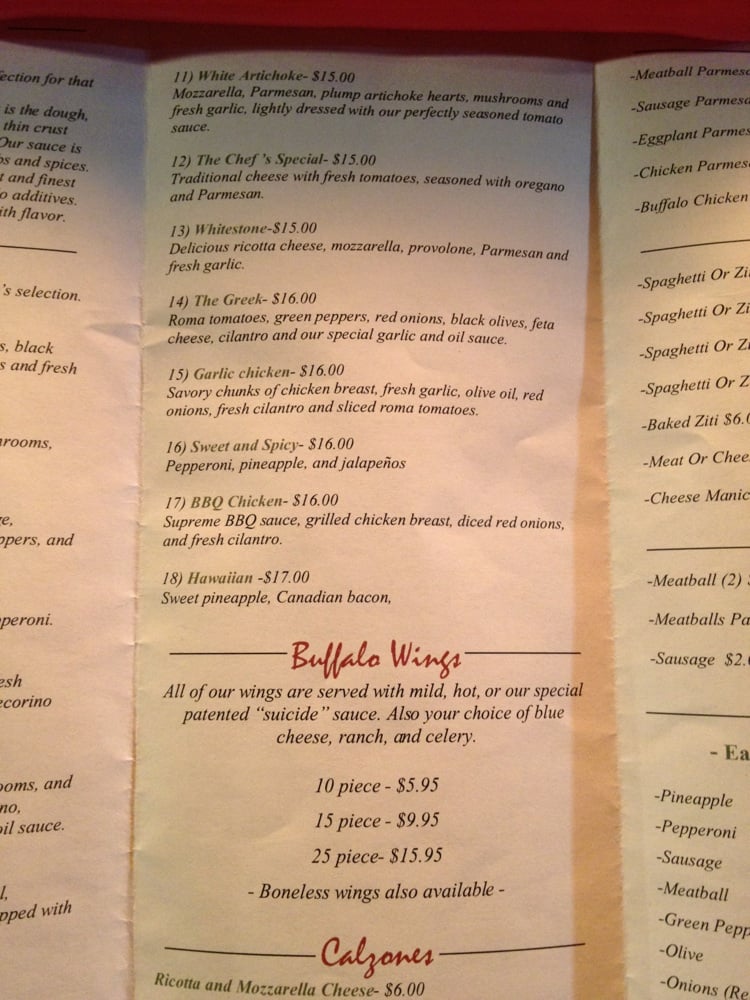 fection for that
is the dough,
thin crust
Our sauce is
bs and spices.
t and finest
o additives.
ith flavor.
's selection.
s, black
s and fresh
hrooms,
ge,
ppers, and
pperoni.
esh
ecorino
ooms, and
no,
oil sauce.
l,
pped with
11) White Artichoke- $15.00
Mozzarella, Parmesan, plump artichoke hearts, mushrooms and
fresh garlic, lightly dressed with our perfectly seasoned tomato
sauce.
12) The Chef 's Special- $15.00
Traditional cheese with fresh tomatoes, seasoned with oregano
and Parmesan.
13) Whitestone-$15.00
Delicious ricotta cheese, mozzarella, provolone, Parmesan and
fresh garlic.
14) The Greek- $16.00
Roma tomatoes, green peppers, red onions, black olives, feta
cheese, cilantro and our special garlic and oil sauce.
15) Garlic chicken- $16.00
Savory chunks of chicken breast, fresh garlic, olive oil, red
onions, fresh cilantro and sliced roma tomatoes.
16) Sweet and Spicy- $16.00
Pepperoni, pineapple, and jalapeños
17) BBQ Chicken- $16.00
Supreme BBQ sauce, grilled chicken breast, diced red onions,
and fresh cilantro.
18) Hawaiian -$17.00
Sweet pineapple, Canadian bacon,
Buffalo Wings
All of our wings are served with mild, hot, or our special
patented “suicide” sauce. Also your choice of blue
cheese, ranch, and celery.
10 piece - $5.95
15 piece - $9.95
25 piece- $15.95
- Boneless wings also available -
Calzones
Ricotta and Mozzarella Cheese- $6.00
-Meatball Parmesa
-Sausage Parmesa
-Eggplant Parmes
-Chicken Parmesa
-Buffalo Chicken
-Spaghetti Or Zi
-Spaghetti Or Zi
-Spaghetti Or Zi
-Spaghetti Or Z
-Baked Ziti $6.0
-Meat Or Chee
-Cheese Manic
-Meatball (2) $
-Meatballs Pa
-Sausage $2.0
- Ea
-Pineapple
-Pepperoni
-Sausage
-Meatball
-Green Pepp
-Olive
-Onions (Re